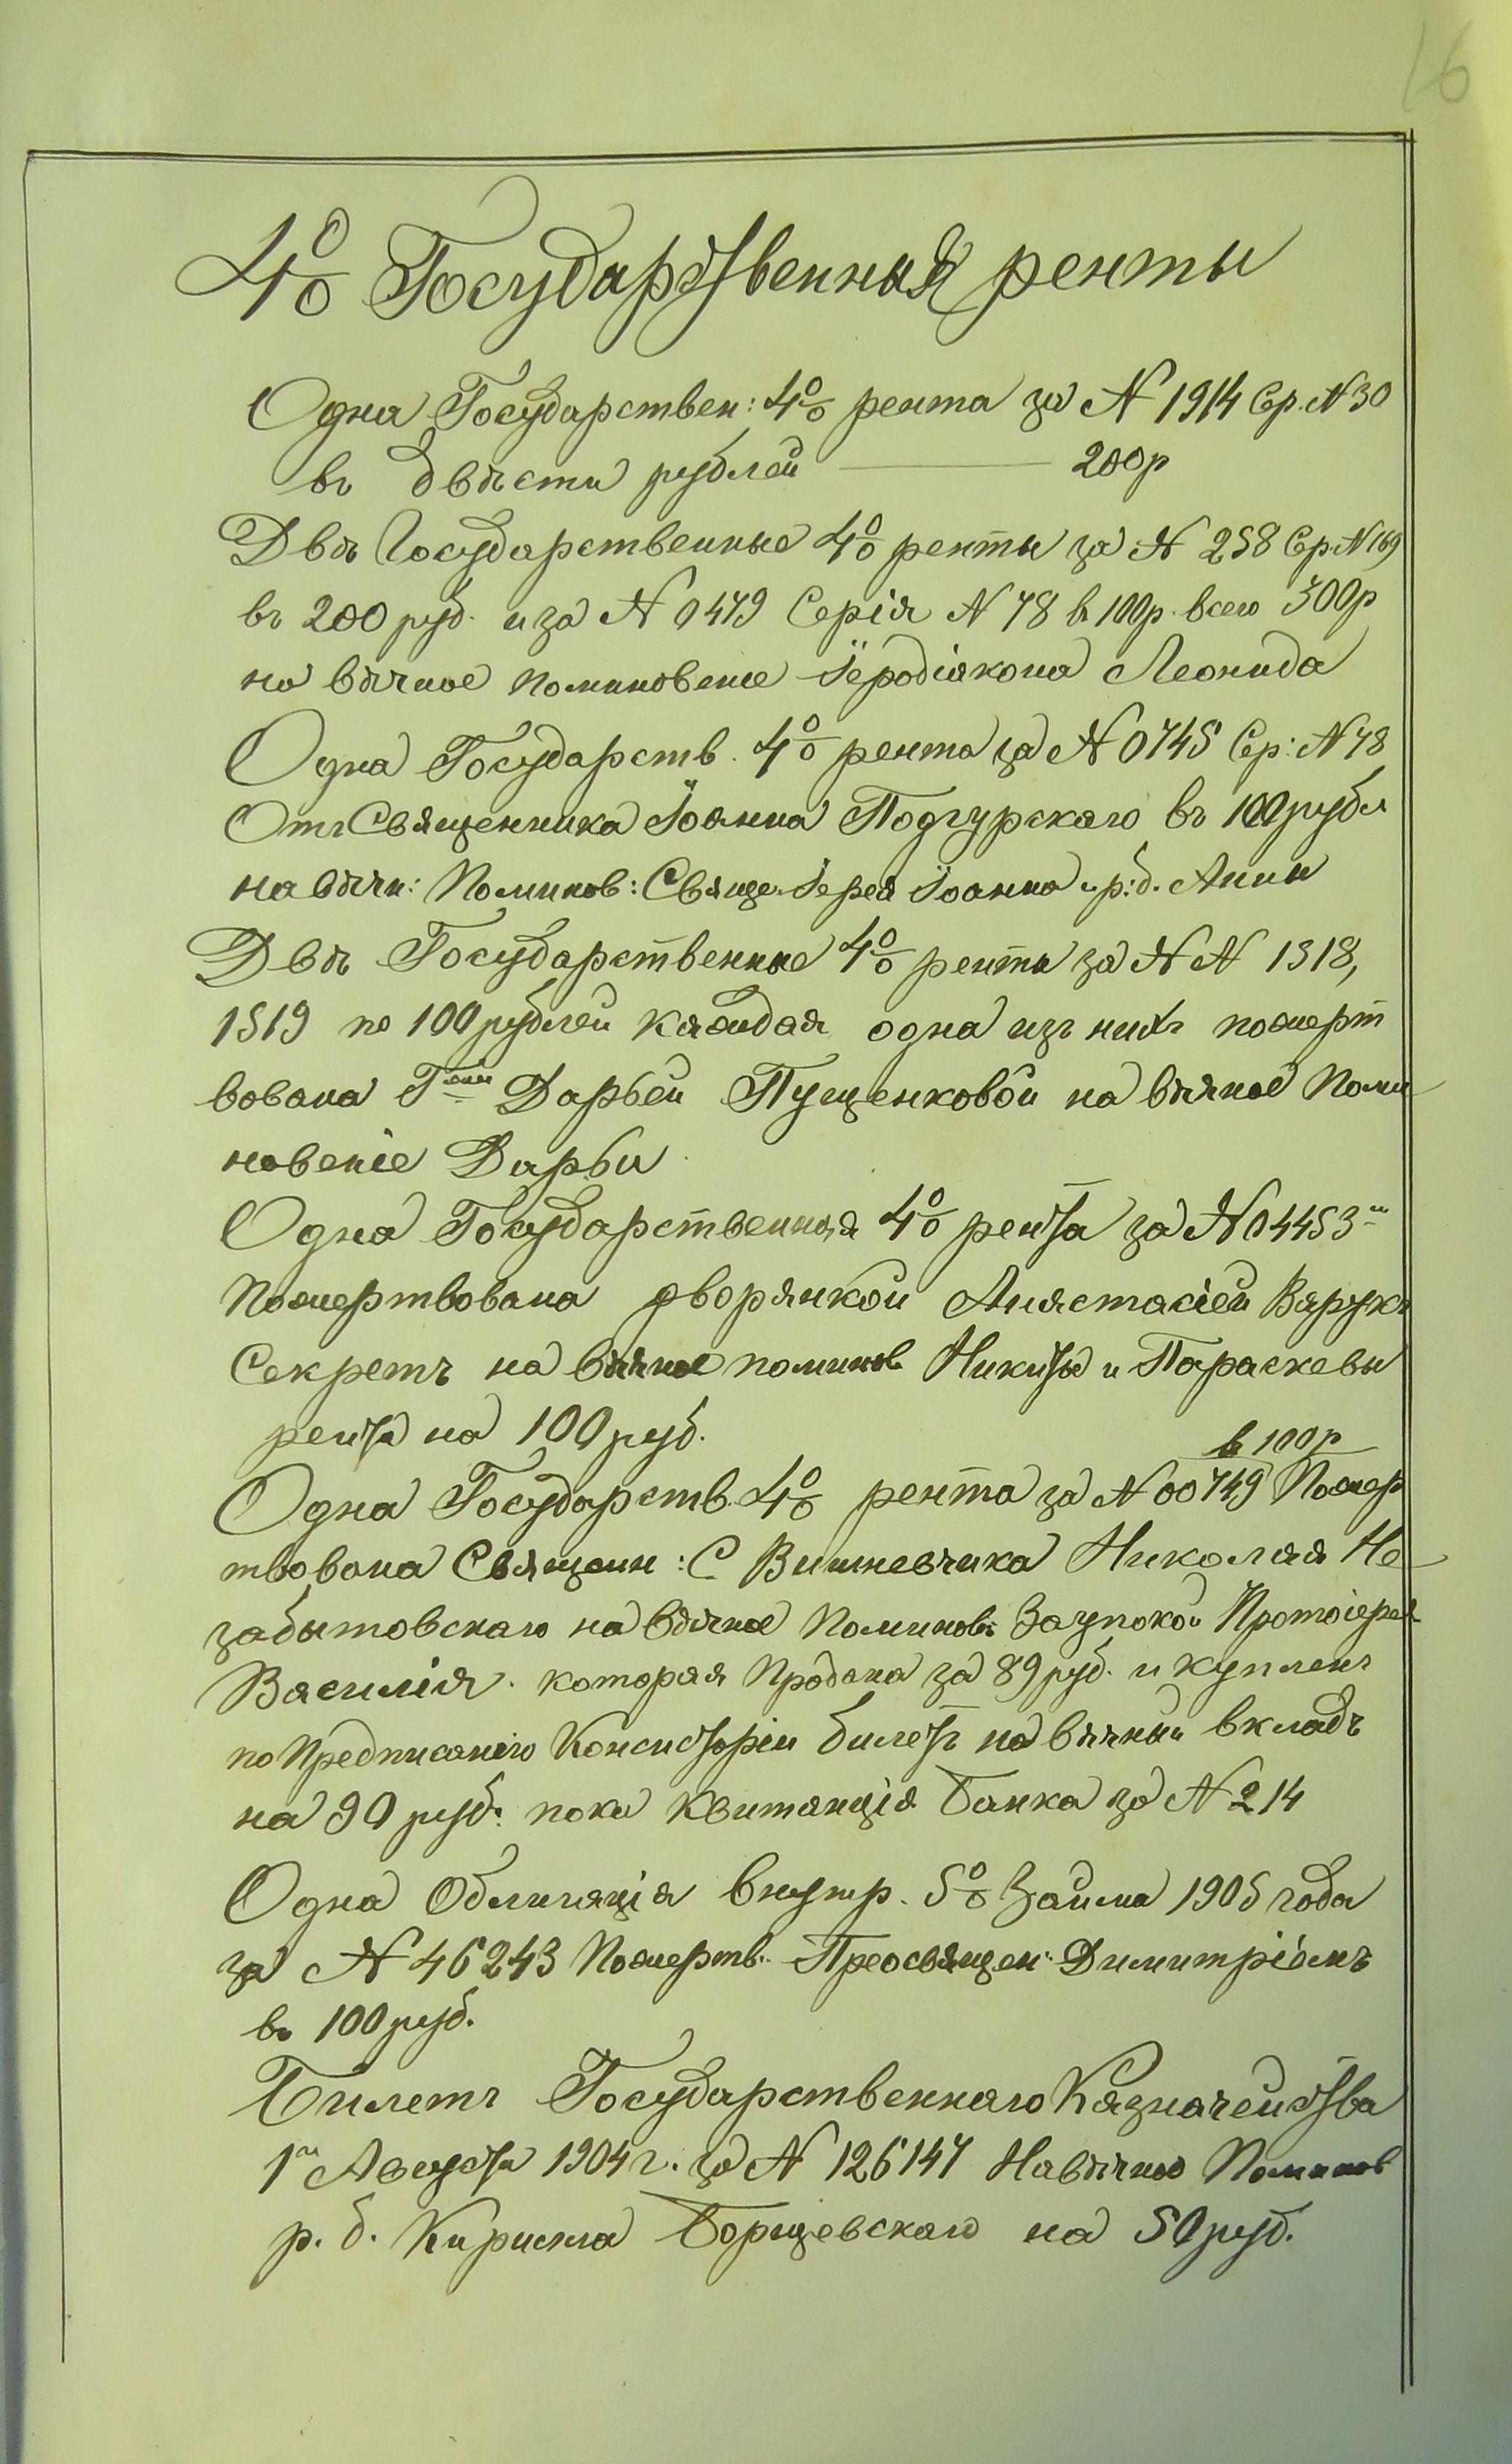 16
4% Государственныя ренты
Одна Государствен: 4% рента за № 1914 Ср. № 30
въ двѣсти рублей — 200р
Двѣ Государственные 4% ренты за № 258 Ср № 169
въ 200 руб. и за № 0479 Серія № 78 в 100р. всего 300р
на вѣчное поминовение Іеродіакона Леонида
Одна Государств. 4% рента за № 0745 Ср: № 78
Отъ Священника Іоанна Подгурскаго въ 100 рубл
на вѣчн: Поминов: Свяще. Іерея Іоанна и р: б. Анны
Двѣ Государственные 4% ренты за № № 1518,
1519 по 100 рублей каждая одна изъ нихъ пожерт
вована Г-жи Дарьей Пущенковой на вѣчное Поми
новеніе Дарьи
Одна Государственная 4% рента за № 04453
Пожертвована дворянкой Анастасіей
Секретъ на вѣчное поминов Никиты и Параскевы
рента на 100 руб.
в 100р
Одна Государств. 4% рента за № 00749 Пожер
твована Священ: С Вишневчика Николая Не
забытовскаго на вѣчное Поминов. Заупокой Протоіерея
Василія. которая Продана за 89 руб. и купленъ
по Предписанію Консисторіи билетъ на вѣчный вкладъ
на 90 руб. пока квитанція Банка за № 214
Одна Облигація внутр. 5% Займа 1905 года
за № 46243 Пожертв. Преосвящен. Димитріемъ
въ 100 руб.
Билетъ Государственнаго Казначейства
1 Августа 1904 г. за № 126147 На вѣчное Поминов
р. б. Кирилла Борщевскаго на 50 руб.